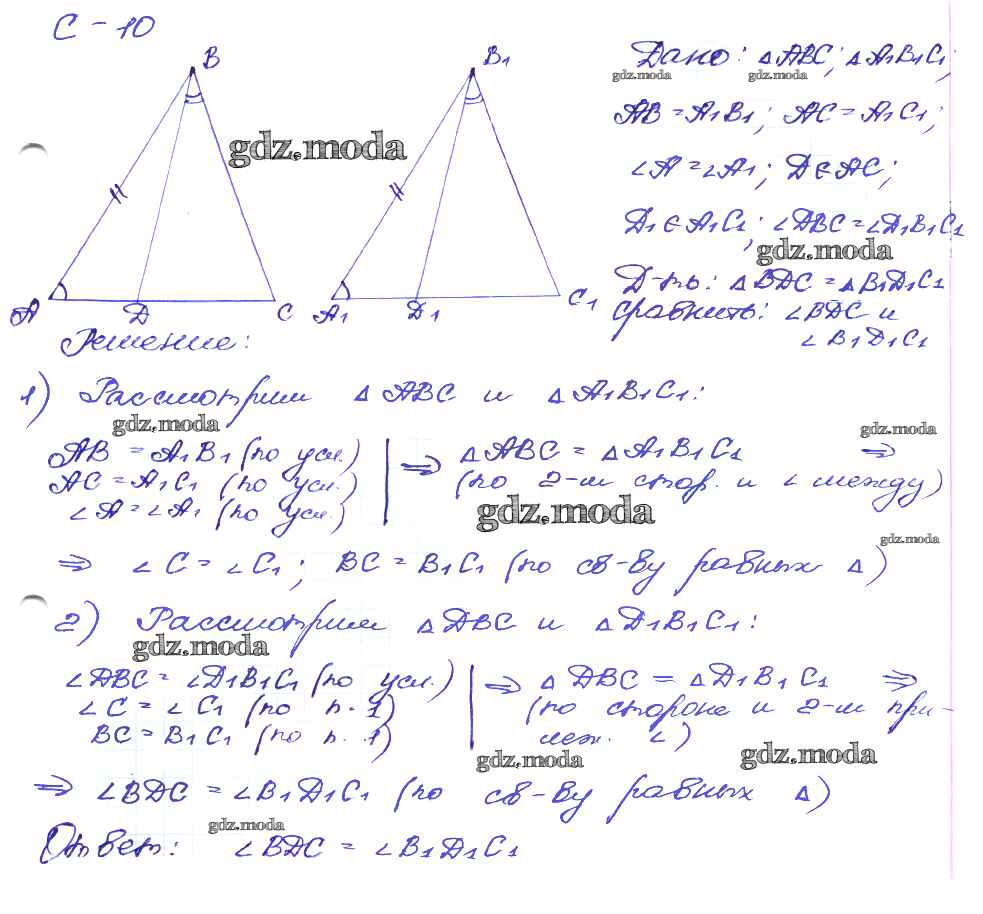 С-10
B
B1
A
D
C
A1
D1
C1
gdz.moda
Дано: △ABC; △A1B1C1;
gdz.moda gdz.moda
AB = A1B1; AC = A1C1;
∠A = ∠A1; D∈AC;
D1∈A1C1; ∠DBC = ∠D1B1C1
gdz.moda
Д-ть: △BDC = △B1D1C1
Сравнить: ∠BDC и
∠B1D1C1
Решение:
1) Рассмотрим △ABC и △A1B1C1:
gdz.moda gdz.moda
AB = A1B1 (по усл.) ⇒ △ABC = △A1B1C1 ⇒
AC = A1C1 (по усл.) (по 2-м стор. и ∠ между)
∠A = ∠A1 (по усл.)
gdz.moda
gdz.moda
⇒ ∠C = ∠C1; BC = B1C1 (по св-ву равных △)
2) Рассмотрим △DBC и △D1B1C1:
gdz.moda
∠DBC = ∠D1B1C1 (по усл.) ⇒ △DBC = △D1B1C1 ⇒
∠C = ∠C1 (по п. 1) (по стороне и 2-м при-
BC = B1C1 (по п. 1) леж. ∠)
gdz.moda gdz.moda
⇒ ∠BDC = ∠B1D1C1 (по св-ву равных △)
gdz.moda
Ответ: ∠BDC = ∠B1D1C1